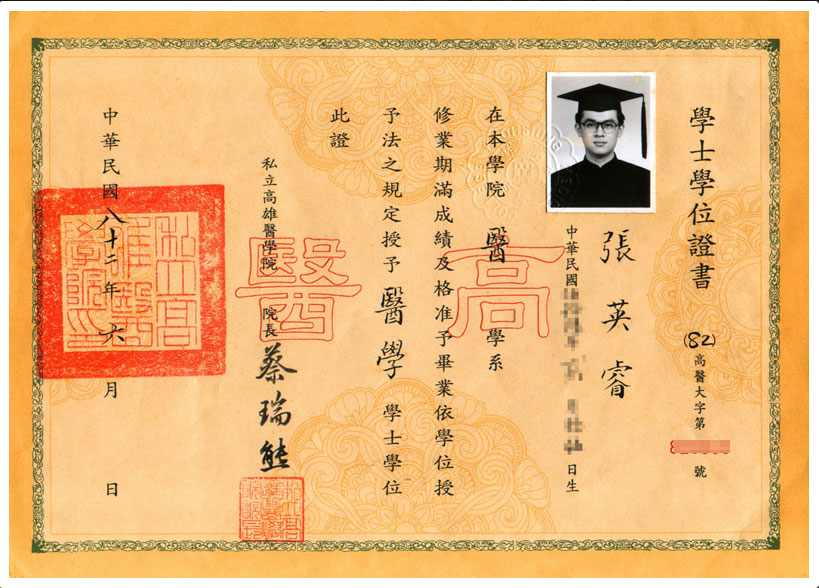 學士學位證書
(82)高醫大字第 號
張英睿
中華民國 日生
在本學院 醫 學系
修業期滿成績及格准予畢業依學位授
予法之規定授予醫學學士學位
此證
私立高雄醫學院 院長 蔡瑞熊
中華民國八十二年六月 日
高醫
私立高雄醫學院印